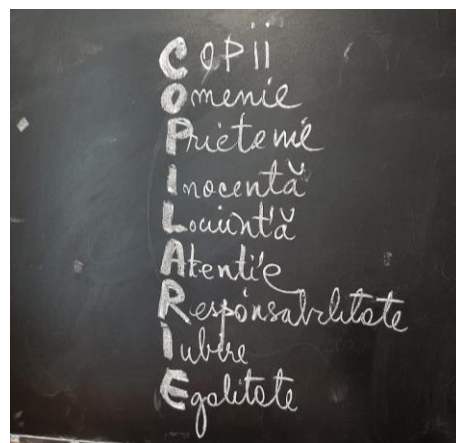 COPii
Omenie
Prietenie
Inocentă
Locuintă
Atenție
Responsabilitate
Iubire
Egalitate